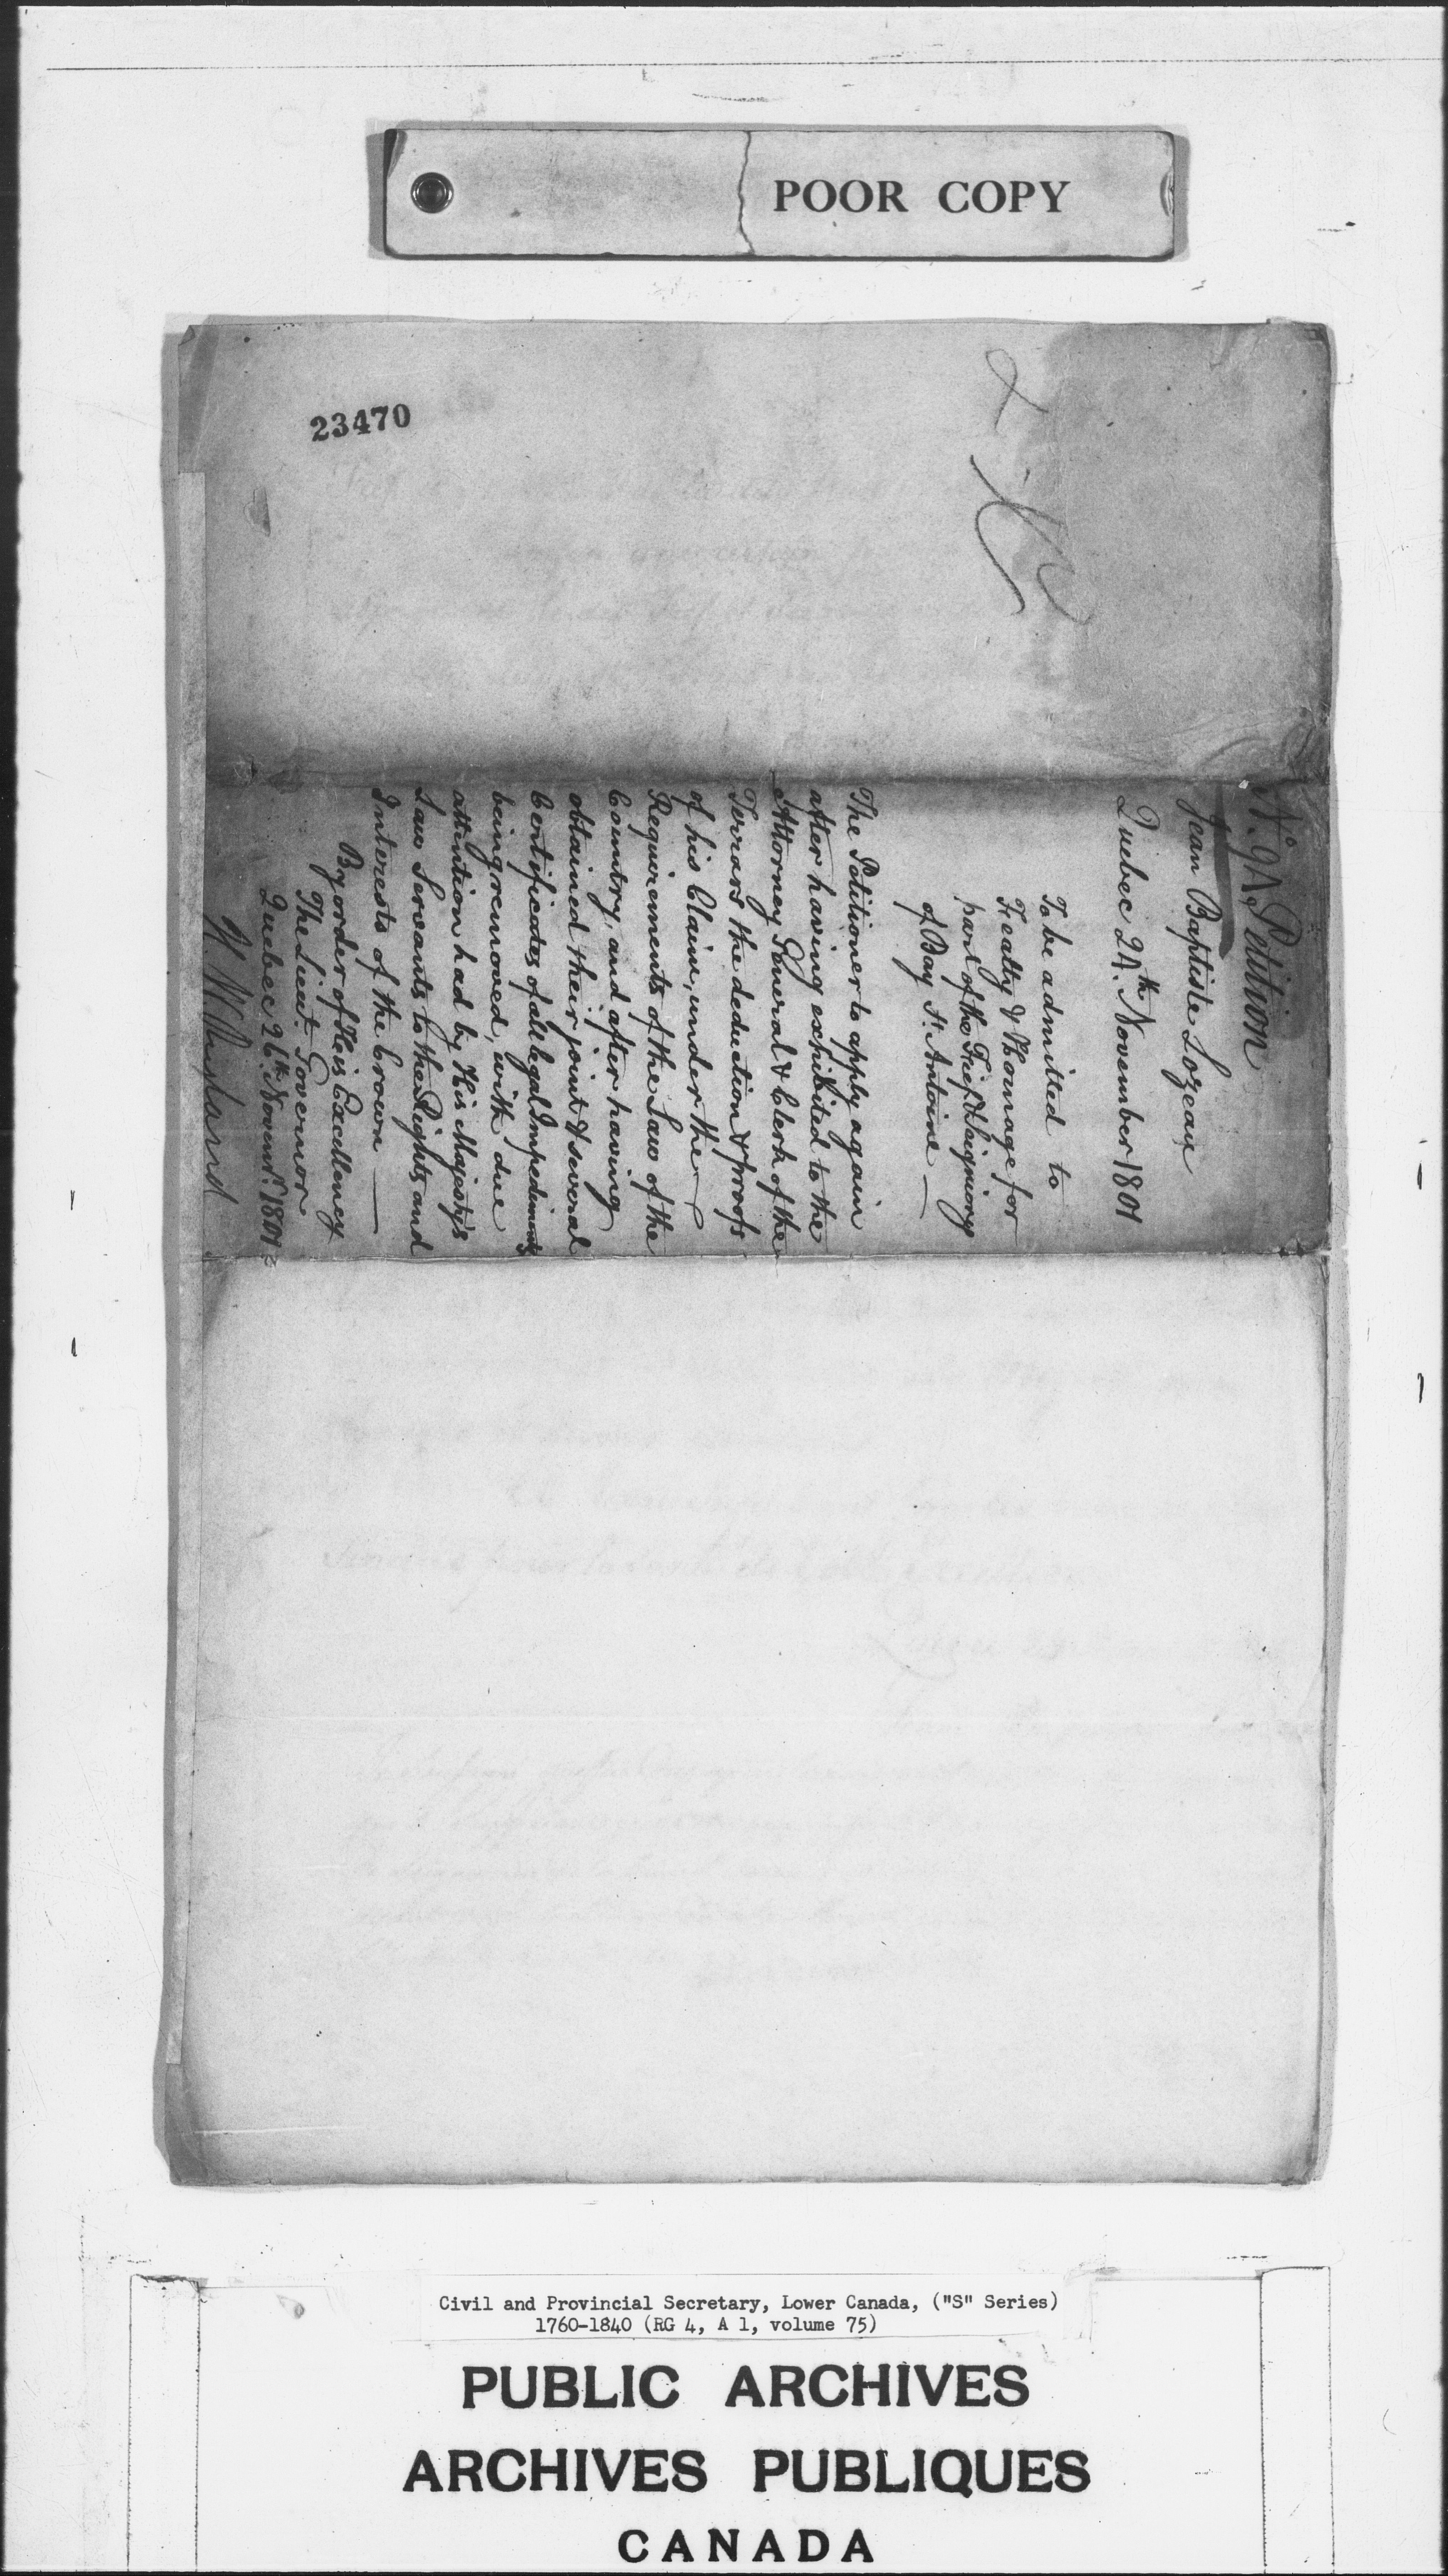 POOR COPY
23470
No. 94 Petition
Jean Baptiste Lozeau
Quebec 24th. November 1801
To be admitted to
Fealty & Homage for
part of the Fief & Seigniory
of Bay St. Antoine —
The Petitioner to apply again
after having exhibited to the
Attorney General & Clerk of the
Terrars the deduction & proofs
of his Claim, under the
Requirements of the Law of the
Country, and after having
obtained their joint & several
Certificates of all legal Impediments
being removed, with due
attention had by His Majesty's
Law Servants to the Rights and
Interests of the Crown —
By order of His Excellency
The Lieut. Governor
Quebec 26th. Novemr. 1801
Civil and Provincial Secretary, Lower Canada, ("S" Series)
1760-1840 (RG 4, A 1, volume 75)
PUBLIC ARCHIVES
ARCHIVES PUBLIQUES
CANADA